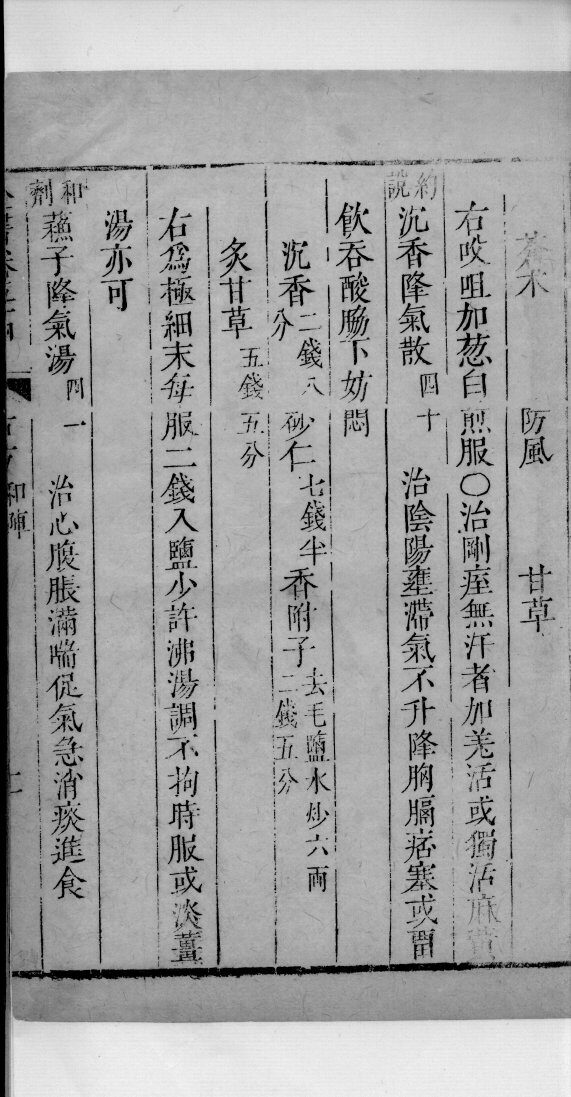 蒼朮 防風 甘草
右㕮咀加葱白煎服〇治剛痓無汗者加羗活或獨活麻黄
約說 沉香降氣散 四十 治陰陽壅滯氣不升降胸膈痞塞或畱
飲吞酸脇下妨悶
沉香 二錢八分 砂仁 七錢半 香附子 去毛鹽水炒六兩二錢五分
炙甘草 五錢五分
右爲極細末每服二錢入鹽少許沸湯調不拘時服或淡薑
湯亦可
和劑 蘓子降氣湯 四一 治心腹脹滿喘促氣急消痰進食
和陣